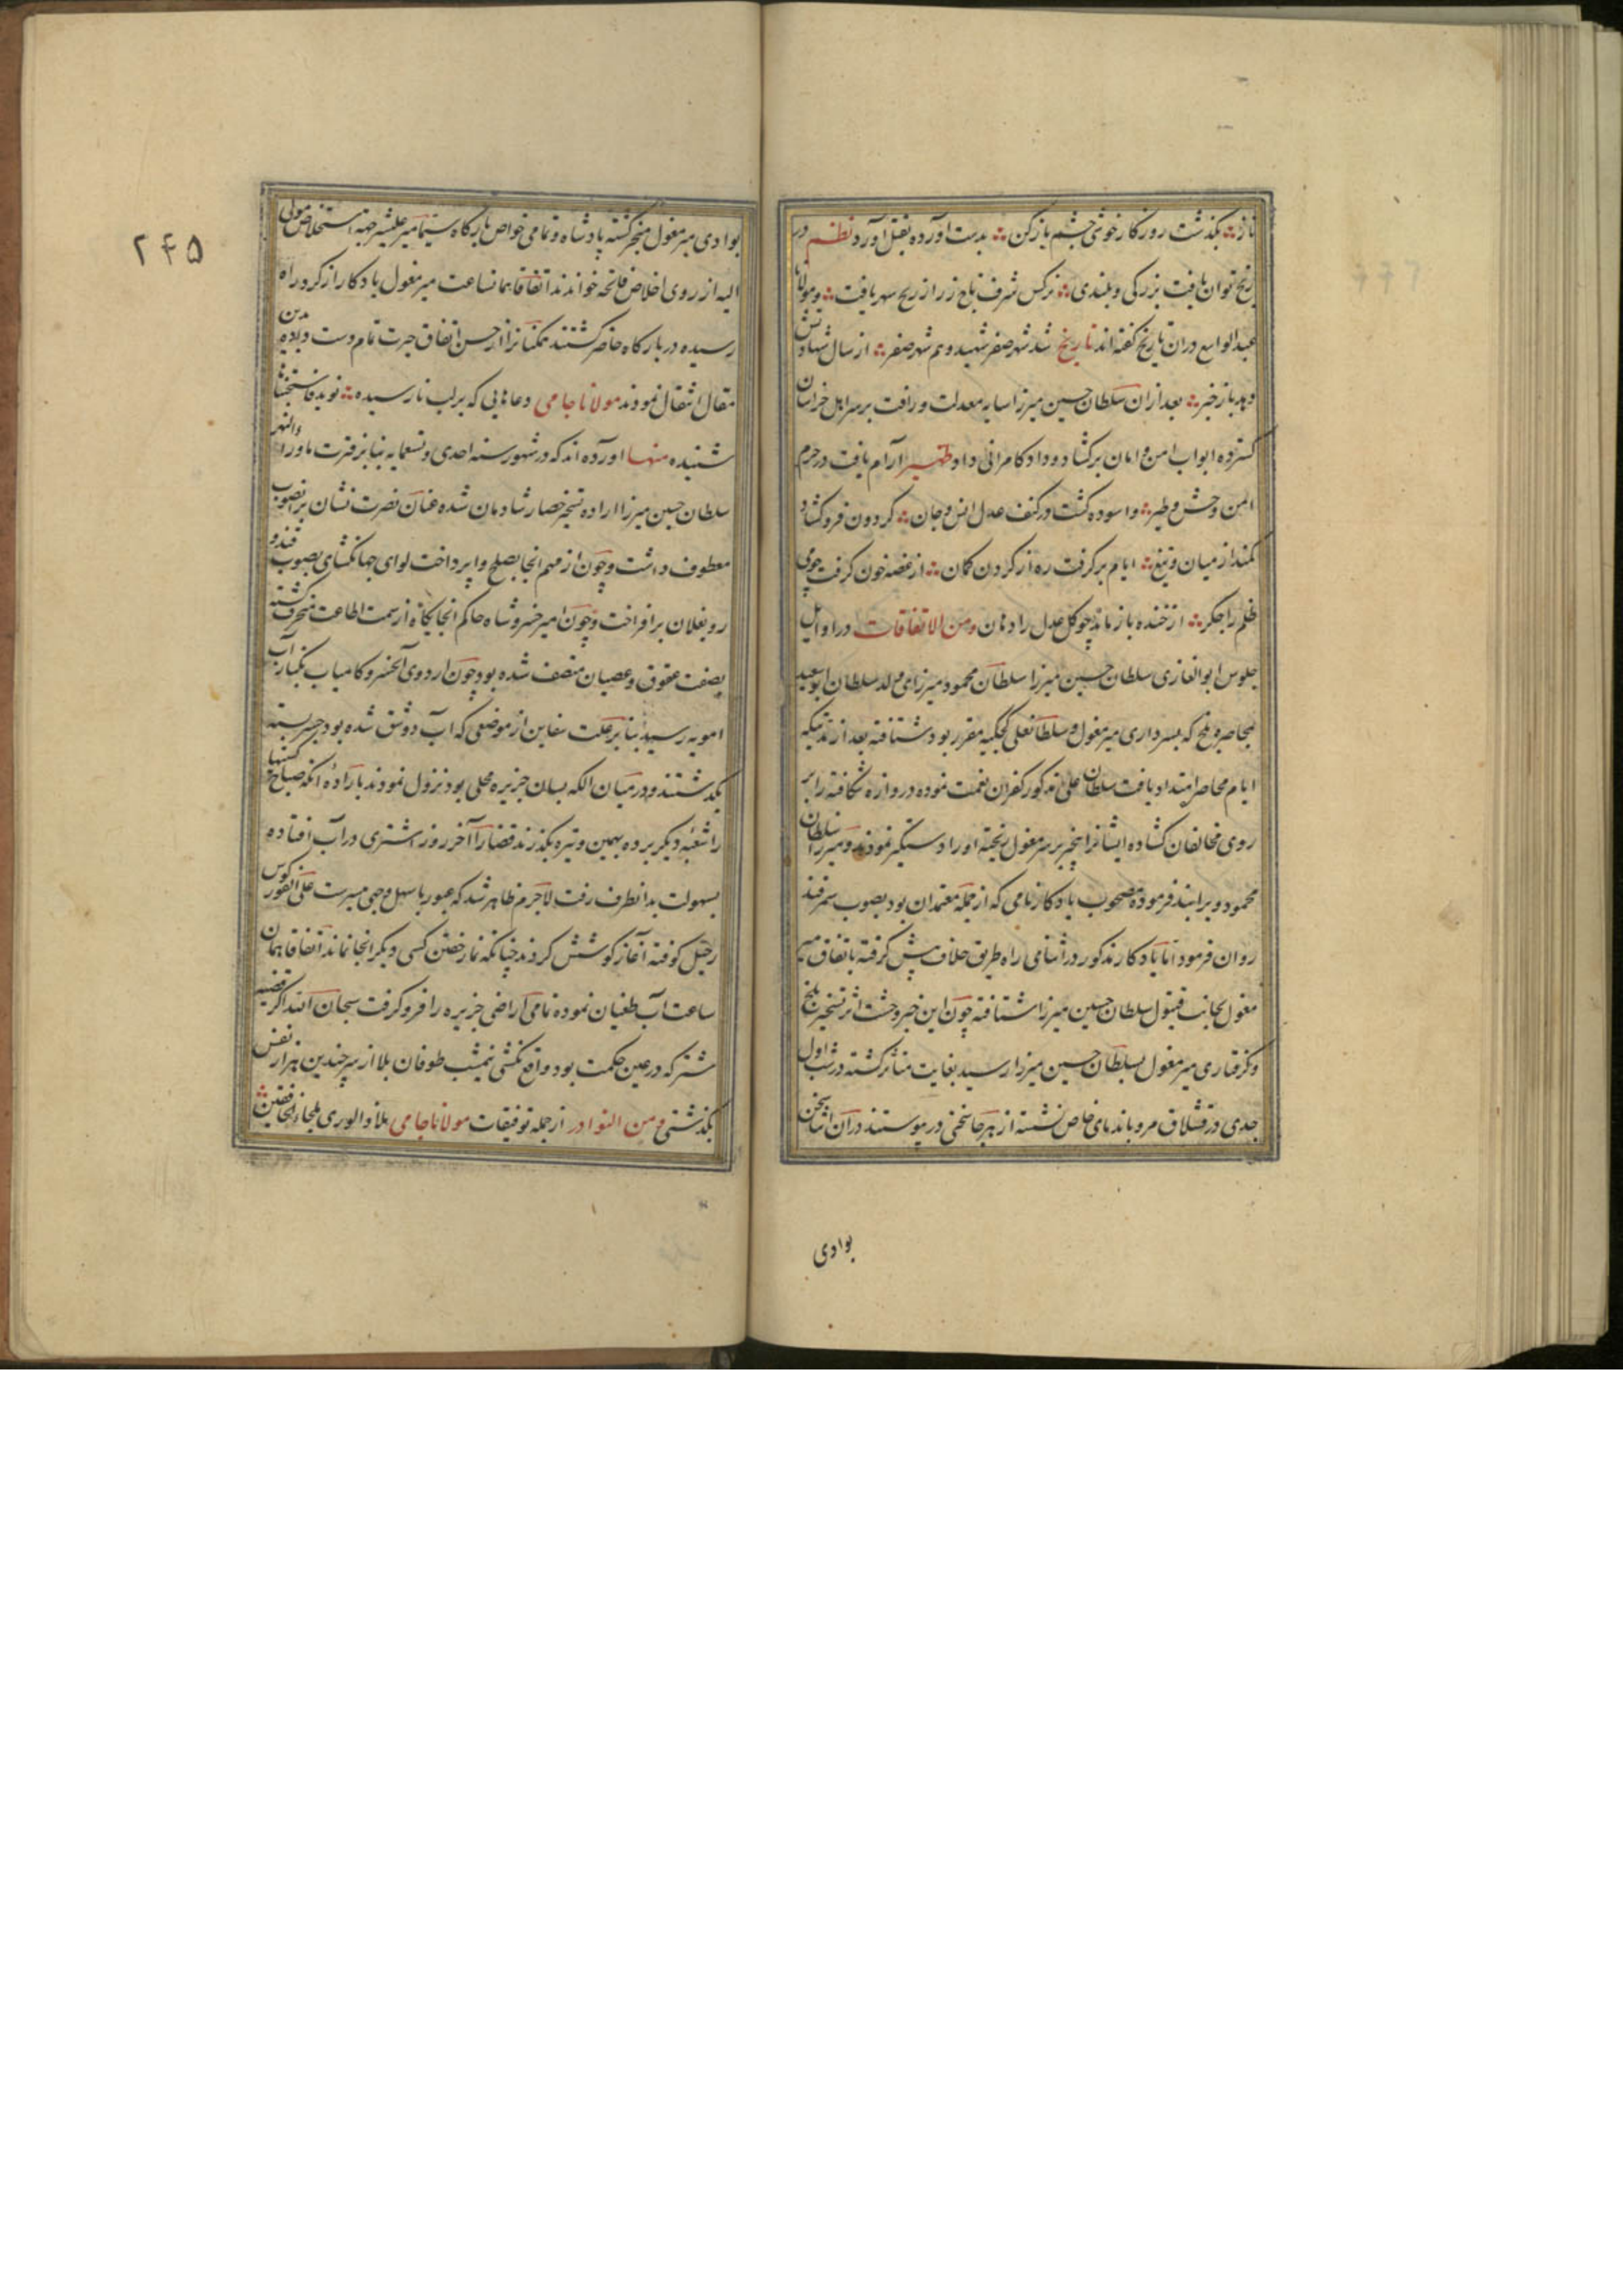 ناز؞ بگذشت روزگار خوشی چشم باز کن؞ بدست آورده بقتل آورد نظم در
رنج توان یافت بزرگی و بلندی؞ نرگس شرف تاج زر از رنج سهر یافت؞ و مولانا
عبدالواسع در آن تاریخ گفته‌اند تاریخ شد شهر صفر شهید و هم شهر صفر؞ از سال شهادتش
دهد باز خبر؞ بعد از آن سلطان حسین میرزا سایه معدلت و رافت بر سر اهل خراسان
گسترده ابواب امن و امان برگشاد و داد کامرانی داد ظهیر آرام یافت در حرم
امن وحش و طیر؞ و آسوده گشت در کنف عدل انس و جان؞ گردون فرو گشاد
کمند از میان تیغ؞ ایام برگرفت زه از گردن کمان؞ از غصه خون گرفت چو می
ظلم را جگر؞ از خنده باز ماند چو گل عدل را دهان ومن الاتفاقات در اوایل
جلوس ابوالغازی سلطان حسین میرزا سلطان محمود میرزای ولد سلطان ابوسعید
بمحاصره بلخ که بسرداری میر مغول و سلطانعلی کجکیه مقرر بود شتافته بعد از تنگیکه
ایام محاصره امتداد یافت سلطان علی مذکور کفران نعمت نموده دروازه شکافته را بر
روی مخالفان گشاده ایشانرا بخبر بر سر مغول ریخته او را دستگیر نمودند و میرزا سلطان
محمود ویرا بند فرموده مصحوب یادگار نامی که از جمله معتمدان بود بصوب سمرقند
روان فرمود اما یادگار مذکور در اثنای راه طریق خلاف پیش گرفته باتفاق میر
مغول بجانب قبول سلطان حسین میرزا شتافته چون این خبر وحشت اثر تسخیر بلخ
و گرفتاری میر مغول بسلطان حسین میرزا رسید بغایت متاثر گشته در شب اول
جدی در قشلاق مرو با ندمای خاص نشسته از هر جا سخنی در می‌پیوستند در آن اثنا سخن
بوادی
۲۴۵
بوادی میر مغول منجر گشته پادشاه و تمامی خواص بارگاه سیما میر علیشیر جهة استخلاص مولی
الیه از روی اخلاص فاتحه خواندند اتفاقا همانساعت میر مغول یادگار از گرد راه
رسیده در بارگاه حاضر گشتند همگنانرا از حسن اتفاق حیرت تمام دست داده بدین
مقال انتقال نمودند مولانا جامی دعاهایی که بر لب نارسیده؞ نوید فاستجبنا
شنیده منها آورده‌اند که در شهور سنه احدی و تسعمایه بنابر فترت ماوراء والنهر
سلطان حسین میرزا اراده تسخیر حصار شادمان شده عنان نصرت نشان بر آنصوب
معطوف داشت و چون از مهم آنجا بصلح وا پرداخت لوای جهانگشای بصوب قندوز
و بغلان برافراخت و چون امیر خسروشاه حاکم آنجا یگانه از سمت اطاعت منحرف گشته
بصفت عقوق و عصیان متصف شده بود چون اردوی آن خسرو کامیاب بکنار آب
امویه رسید بنا بر علت سفاین از موضعی که آب دو شق شده بود جسر بسته
بگذشتند و در میان الکه بسان جزیره محلی بود نزول نمودند باراده آنکه صباح کشتیها
را شعبه دیگر برده بهمین وتیره بگذرند قضا را آخر روز اشتری در آب افتاده
بسهولت بدانطرف رفت لاجرم ظاهر شد که عبور باسهل وجهی میسرست علی الفور کوس
رحیل کوفته آغاز کوشش کردند چنانکه نماز خفتن کسی دیگر آنجا نماند اتفاقا همان
ساعت آب طغیان نموده تمامی اراضی جزیره را فرو گرفت سبحان الله اگر قضیه
شتر که در عین حکمت بود واقع نگشتی نیمشب طوفان بلا از سر چندین هزار نفس
بگذشتی ومن النوادر از جمله توفیقات مولانا جامی ملاذ الوری ملجاء الخافقین؞